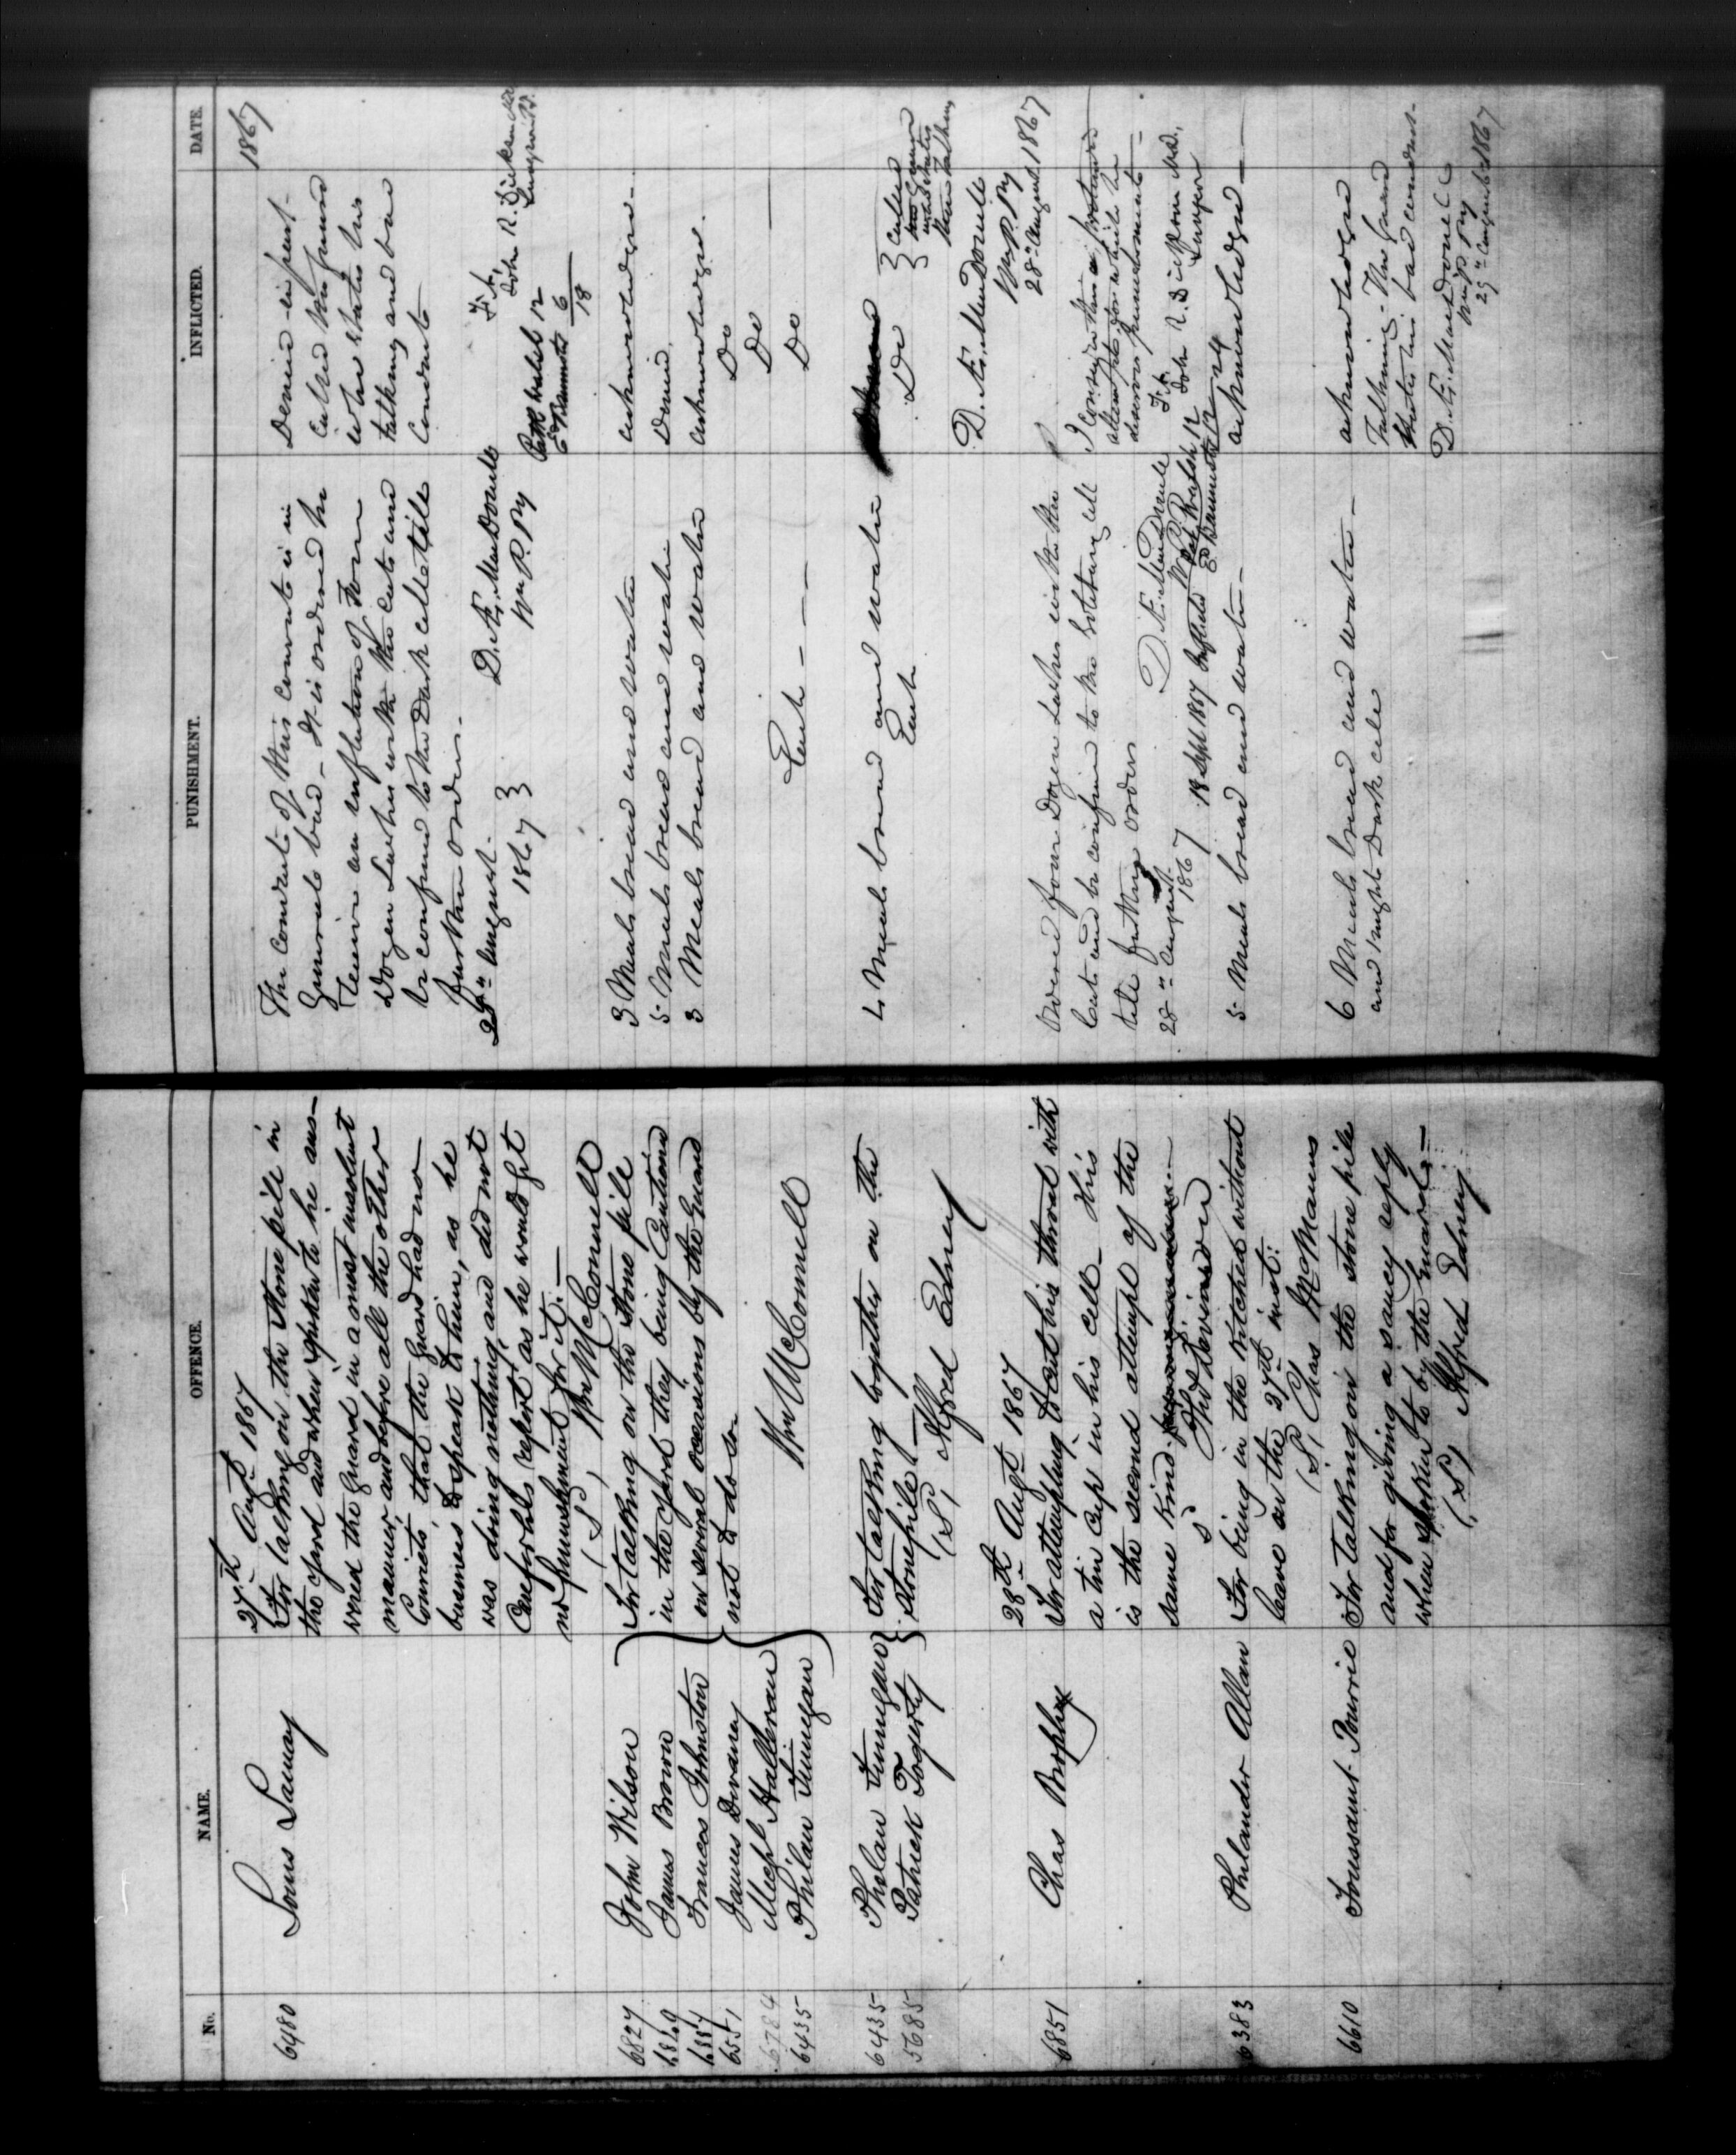 No. NAME. OFFENCE.
27th Augt 1867
6480 Louis Lamay For talking on the stone pile in
the yard and when spoken to he ans-
wered the guard in a most insolent
manner and before all the other
Convicts, that the guard had no
business to speak to him, as he
was doing nothing and did not
Care for his report as he would get
no punishment for it.—
(S) Wm McConnell
6827 John Wilson For talking on the stone pile
6849 James Brown in the yard they being Cautioned
6857 Frances Johnston on several occasions by the Guard
6551 James Devany not to do so
6784 Michl Halleran
6435 Philan Finnegan Wm McConnell
6435 Phelan Finnegan For talking together on the
5685 Patrick Fogerty stonepile—
(S) Alfred Edney
28th Augt 1867
6851 Chas Brophy For attempting to cut his throat with
a tin Cup in his cell – This
is the second attempt of the
same kind
S Thos Davidson
6383 Philander Allan For being in the Kitchen without
leave on the 27th inst:
(S) Chas McManus
6610 Toussaint Pourrie For talking on the stone pile
and for giving a saucy reply
when spoken to by the guard.—
(S) Alfred Edney
PUNISHMENT. INFLICTED. DATE.
1867
The conduct of this convict is in
general bad – It is ordered he
receive an infliction of Four
Dozen Lashes with the cats and
be confined to the Dark cell till
further orders.
28th August 1867
D. Æ. MacDonell
W. P. Py
Denied in part –
called the guard
who states his
talking and bad
conduct
Fit,
John R. Dickson MD
Surgeon P.P.
Patk Walsh 12
Ed Bannister 6
18
3 Meals bread and water acknowledges –
5 Meals bread and water Denied.
3 Meals bread and water acknowledges.
Do
Do
Each – – – Do
4 Meals bread and water
Each Do
called
the Guard
who states
them talking
D. Æ. MacDonell
W. P. Py
28th August 1867
Ordered four Dozen Lashes with the
Cats and be confined to the Solitary cell
till further orders
28th August 1867
D. Æ. MacDonell
W. P. Py
I consider this a pretended
attempt for which he
deserves punishment –
Fit,
John R. Dickson MD.,
Surgeon
18 Sept 1867 Inflicted Patk Walsh 12
Ed Bannister 12
24
5 Meals bread and water – acknowledged –
6 Meals bread and water –
and 1 night Dark cell
acknowledged
Talking – The guard
states his bad conduct –
D. Æ. MacDonell
W. P. Py
29th August 1867